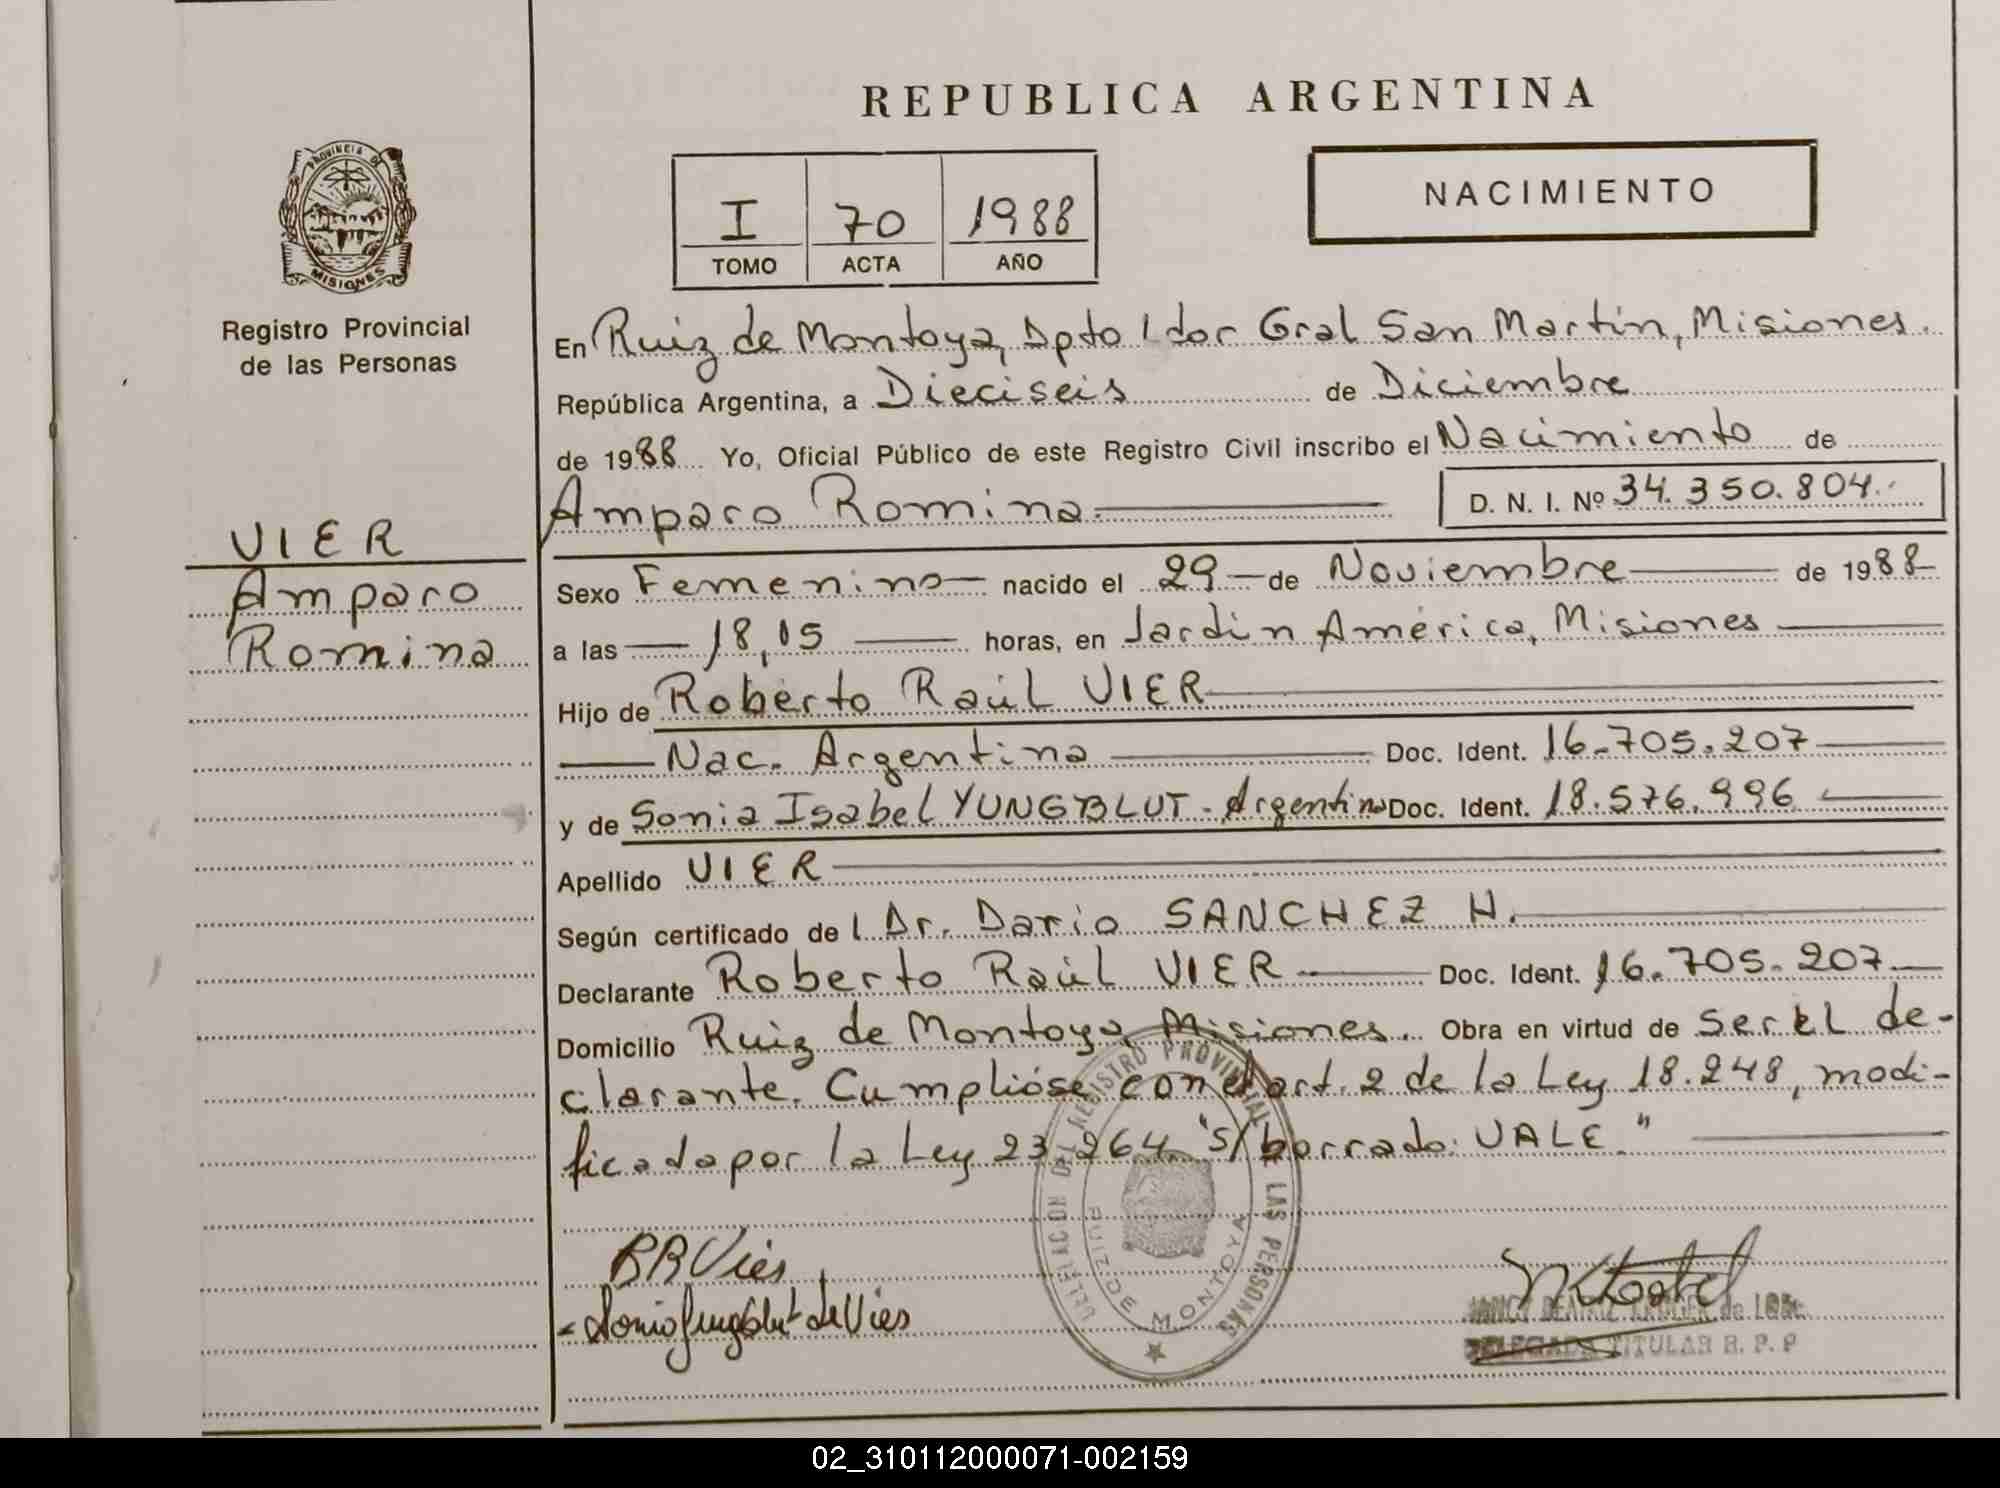 REPUBLICA ARGENTINA
NACIMIENTO
I 70 1988
TOMO ACTA AÑO
PROVINCIA DE
MISIONES
Registro Provincial
de las Personas
VIER
Amparo
Romina
En Ruiz de Montoya, Dpto Ldor Gral San Martín, Misiones.
República Argentina, a Dieciseis de Diciembre
de 1988 Yo, Oficial Público de este Registro Civil inscribo el Nacimiento de
Amparo Romina D. N. I. Nº 34.350.804.
Sexo Femenino nacido el 29 de Noviembre de 1988
a las 18,15 horas, en Jardín América, Misiones
Hijo de Roberto Raúl VIER
Nac. Argentina Doc. Ident. 16.705.207
y de Sonia Isabel YUNGBLUT - Argentina Doc. Ident. 18.576.996
Apellido VIER
Según certificado de l Dr. Darío SANCHEZ H.
Declarante Roberto Raúl VIER Doc. Ident. 16.705.207
Domicilio Ruiz de Montoya, Misiones. Obra en virtud de ser el de-
clarante. Cumplióse con el art. 2 de la Ley 18.248, modi-
ficada por la Ley 23.264. "s/borrado: VALE"
DELEGACION DEL REGISTRO PROVINCIAL DE LAS PERSONAS
RUIZ DE MONTOYA
RRVier
Sonia Yungblut de Vier
NANCY BEATRIZ KRUGER de
DELEGADA TITULAR R. P. P
02_310112000071-002159